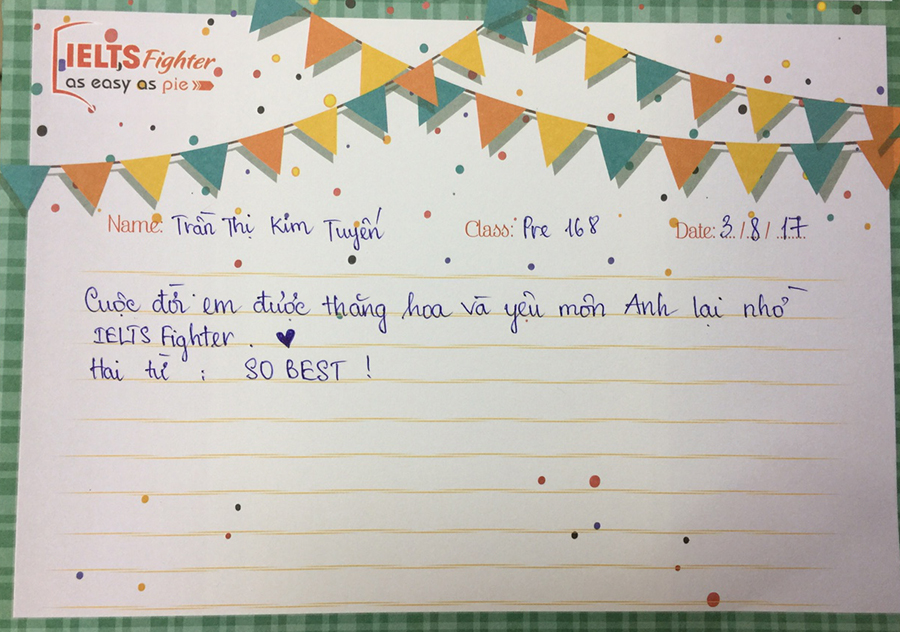 IELTS Fighter
as easy as pie
Name: Trần Thị Kim Tuyến Class: Pre 168 Date: 3 / 8 / 17
Cuộc đời em được thăng hoa và yêu môn Anh lại nhờ
IELTS Fighter. ♥
Hai từ : SO BEST !